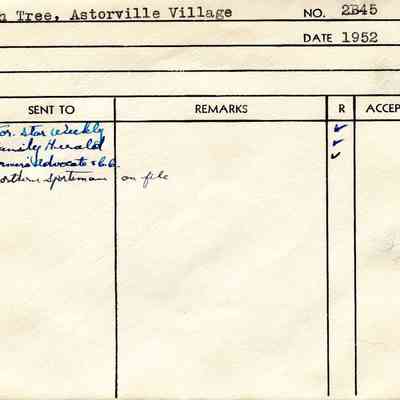 n Tree, Astorville Village NO. 2B45
DATE 1952
SENT TO REMARKS R ACCEP
or. Star Weekly ✓
amily Herald ✓
armers' Advocate & C.C. ✓
orthern Sportsman on file